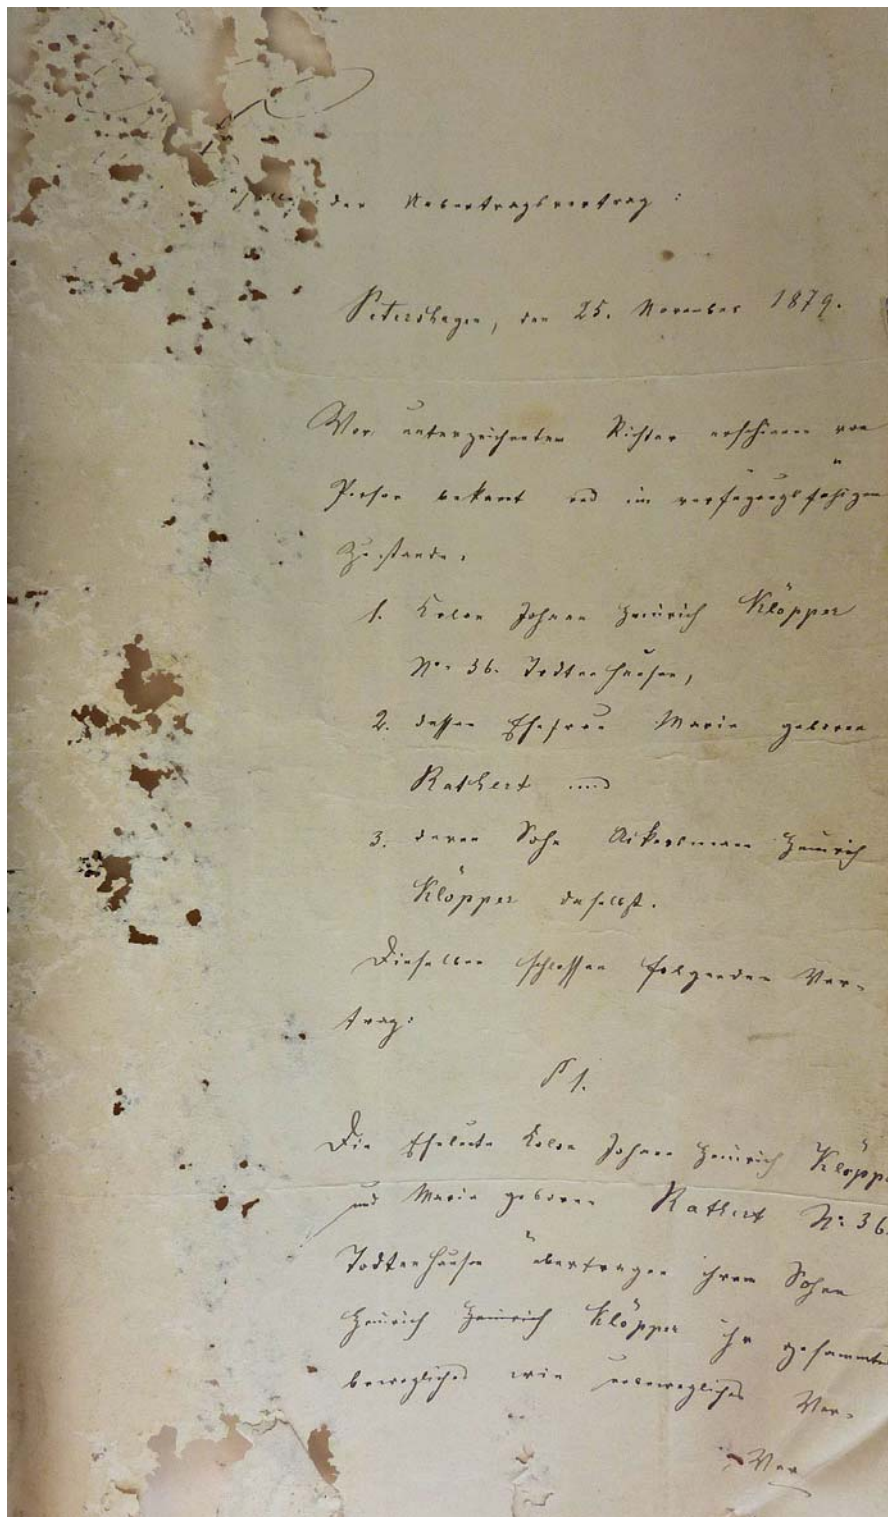 der Uebertragsvertrag:
Petershagen, den 25. November 1879.
Vor unterzeichneten Richter erschienen von
Person bekant und im verfügungsfähigen
Zustande,
1. Colon Johann Heinrich Klöpper
No. 36. Todtenhausen,
2. dessen Ehefrau Marie geboren
Rathert und
3. deren Sohn Ackersmann Heinrich
Klöpper daselbst.
Dieselben schlossen folgenden Ver-
trag:
§ 1.
Die Eheleute Colon Johann Heinrich Klöppe
und Marie geboren Rathert No: 36.
Todtenhausen übertragen ihrem Sohne
Heinrich Heinrich Klöpper ihr gesammte
bewegliches wie unbewegliches Ver-
Ver